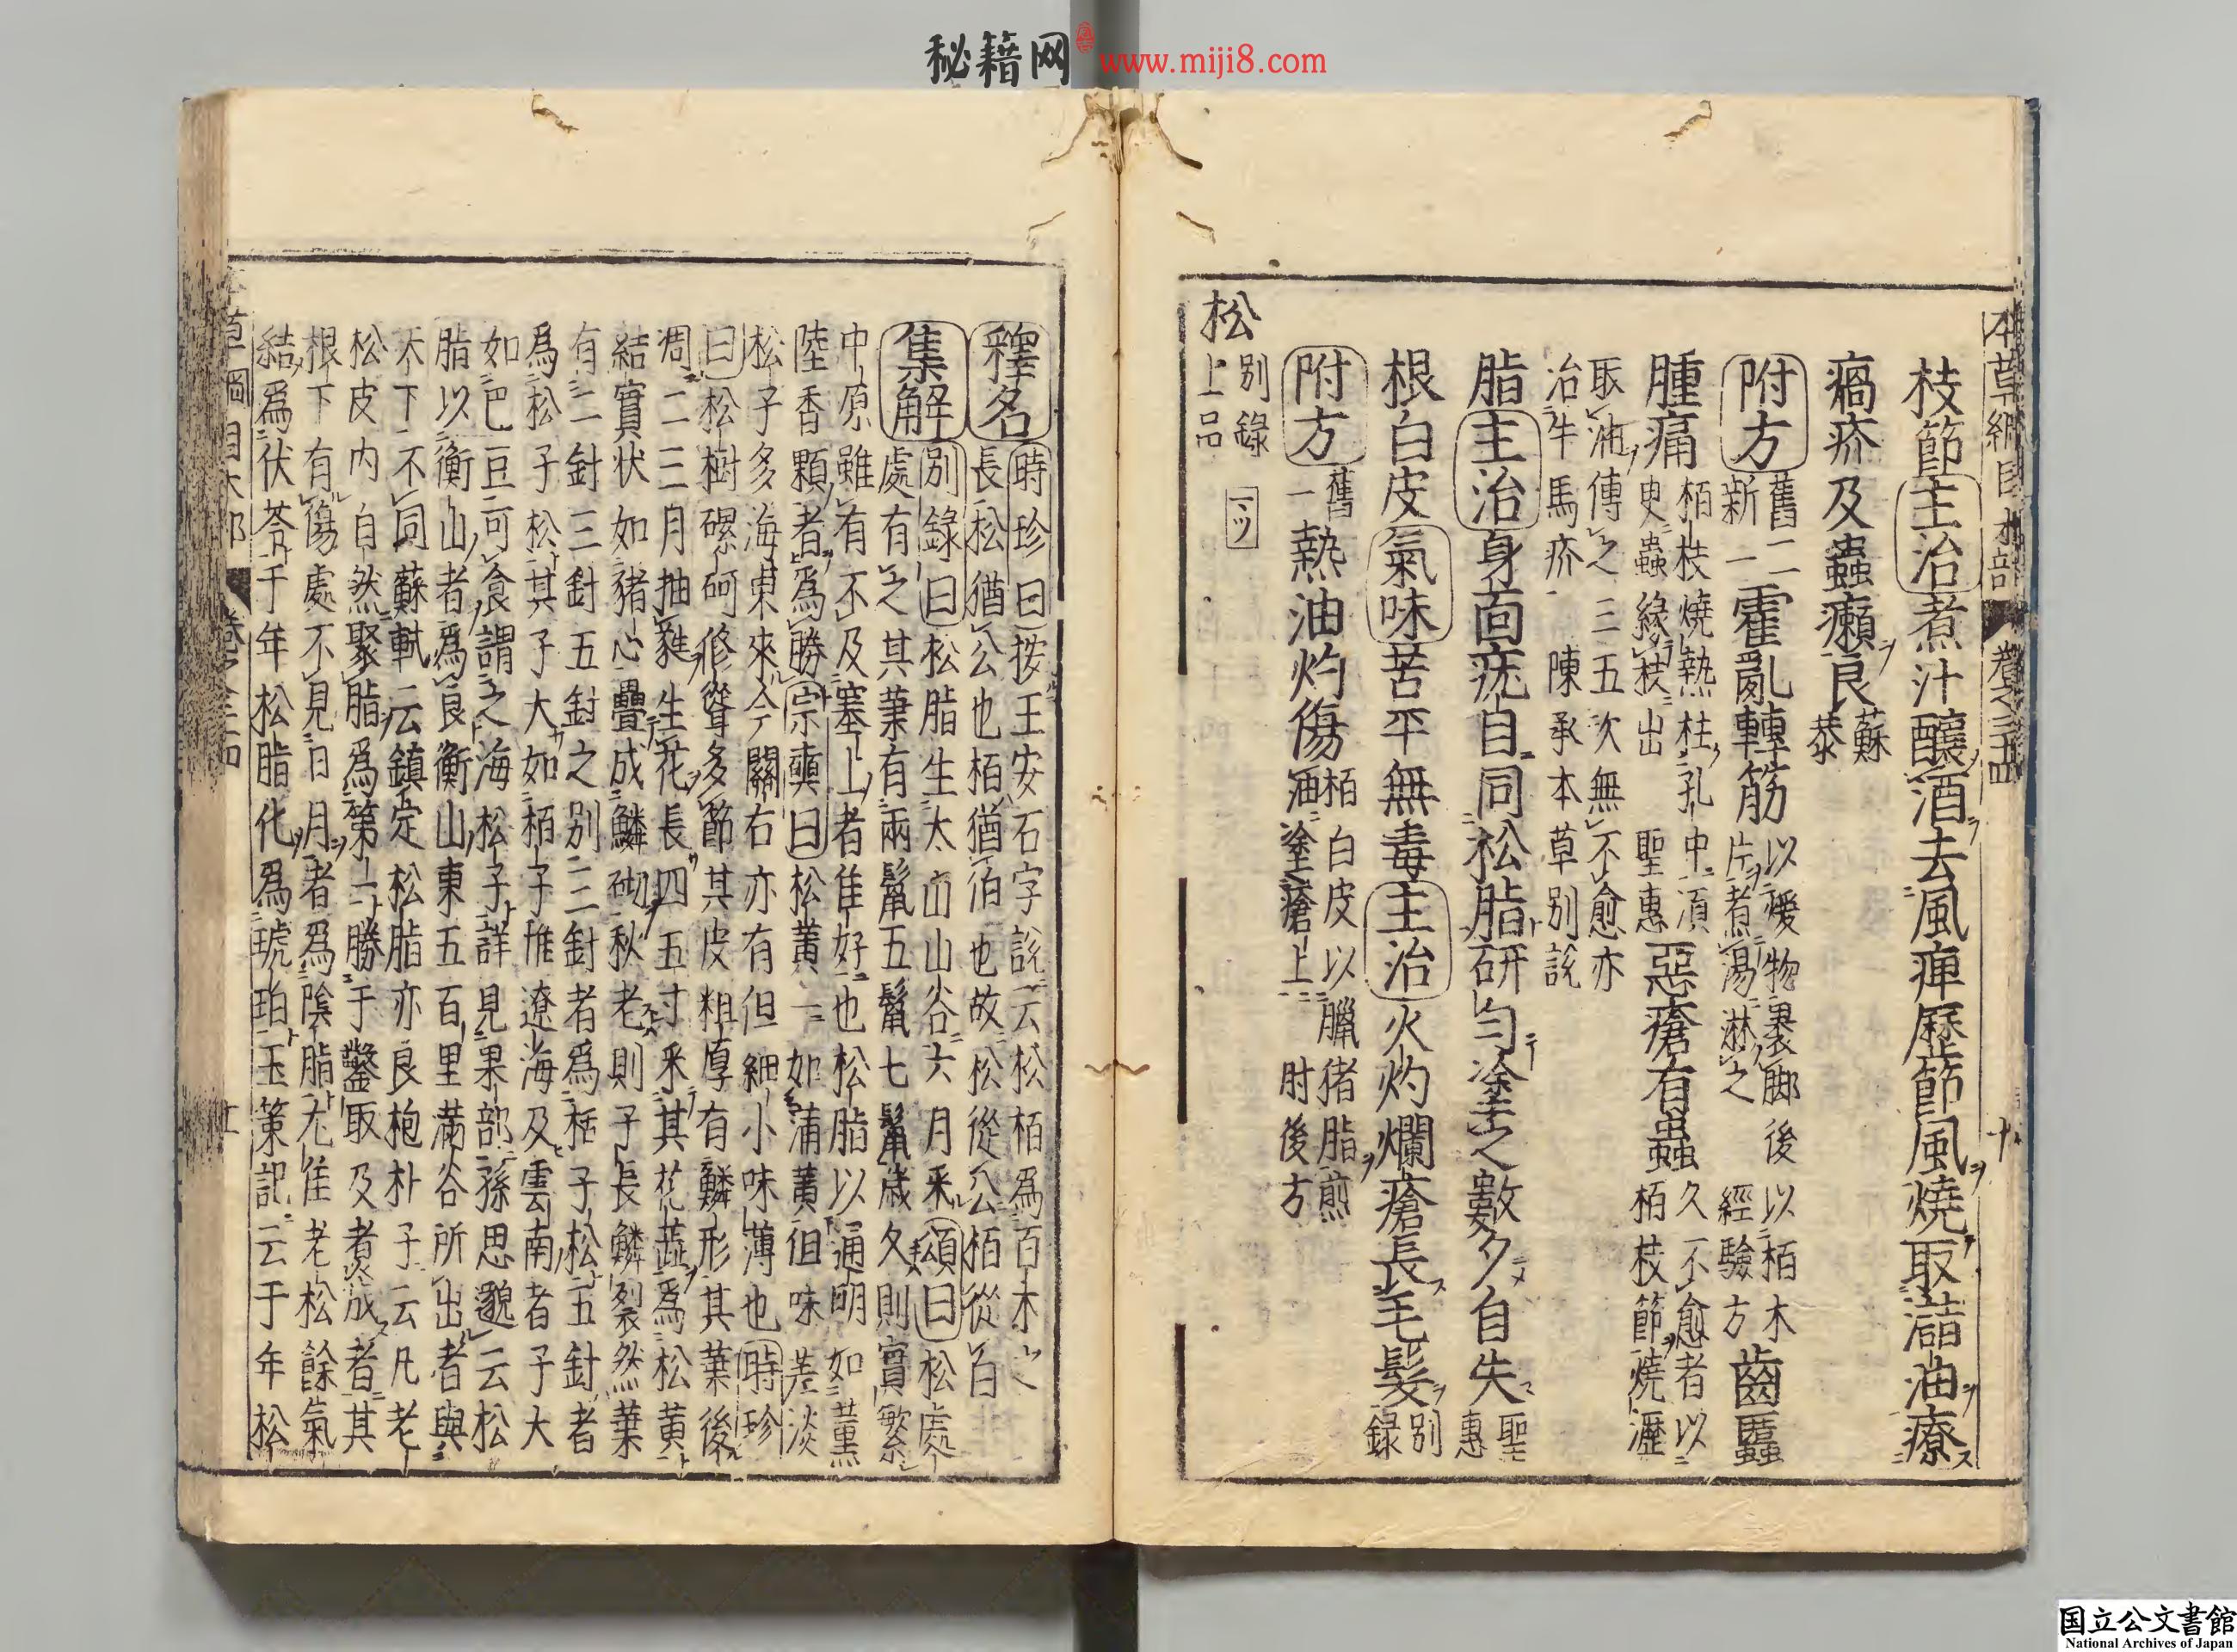 秘籍网 www.miji8.com
本草綱目木部 卷之三十四 十
枝節主治煮汁釀酒去風痺歷節風燒取𤁋油療
瘑疥及蟲癩良蘇恭
附方舊二新一霍亂轉筋以煖物裹脚後以栢木片煮湯淋之經驗方齒䘌
腫痛栢枝燒熱柱孔中須史蟲緣枝出聖惠惡瘡有蟲久不愈者以栢枝節燒瀝
取油傅之三五次無不愈亦治牛馬疥陳承本草別說
脂主治身面疣目同松脂研勻塗之數夕自失聖惠
根白皮氣味苦平無毒主治火灼爛瘡長毛髮別錄
附方舊一熱油灼傷栢白皮以臘猪脂煎油塗瘡上肘後方
松別錄上品 マツ
釋名時珍曰按王安石字說云松栢爲百木之
長松猶公也栢猶伯也故松從公栢從白
集解別錄曰松脂生太山山谷六月采頌曰松處
處有之其葉有兩鬛五鬛七鬛歲久則實繁
中原雖有不及塞上者佳好也松脂以通明如薫
陸香顆者爲勝宗奭曰松黃一如蒲黃但味差淡
松子多海東來今關右亦有但細小味薄也時珍
曰松樹磥砢修聳多節其皮粗厚有鱗形其葉後
凋二三月抽蕤生花長四五寸采其花蕋爲松黃
結實狀如猪心疊成鱗砌秋老則子長鱗裂然葉
有二針三針五針之別二針者爲栝子松五針者
爲松子松其子大如栢子惟遼海及雲南者子大
如巴豆可食謂之海松子詳見果部孫思邈云松
脂以衡山者爲良衡山東五百里滿谷所出者與
天下不同蘇軾云鎭定松脂亦良抱朴子云凡老
松皮内自然聚脂爲第一勝于鑿取及煮成者其
根下有傷處不見日月者爲陰脂尤佳老松餘氣
結爲伏苓千年松脂化爲琥珀玉策記云千年松
草綱目木部
国立公文書館
National Archives of Japan